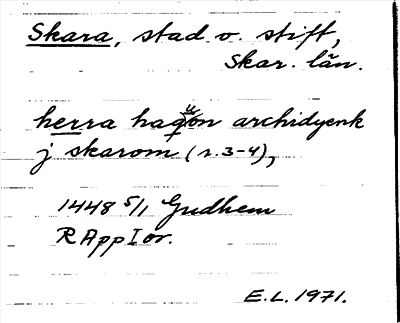 Skara, stad o. stift,
Skar. län.
herra haquon archidyenk
j skarom (r. 3-4),
1448 5/1 Gudhem
RAppIor.
E.L. 1971.